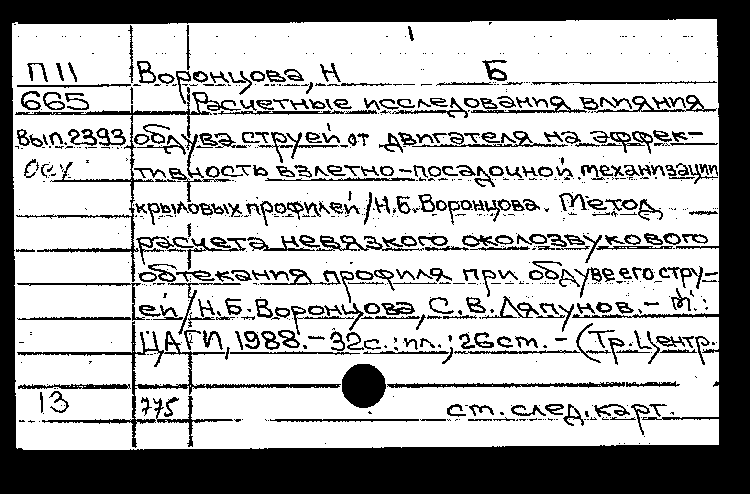 П 11 Воронцова, Н Б
665 Расчетные исследования влияния
Вып.2393 обдува струей от двигателя на эффек-
тивность взлетно-посадочной механизации
крыловых профилей / Н.Б.Воронцова. Метод
расчета невязкого околозвукового
обтекания профиля при обдуве его стру-
ей / Н.Б.Воронцова, С.В.Ляпунов. - М.:
ЦАГИ, 1988. - 32с.: ил.; 26 cm. - (Тр. Центр.
13 775 ст. след. карт.